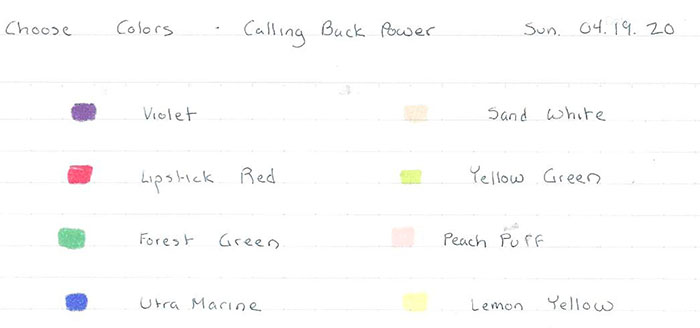 Choose Colors · Calling Back Power Sun. 04.19.20
Violet Sand White
Lipstick Red Yellow Green
Forest Green Peach Puff
Utra Marine Lemon Yellow